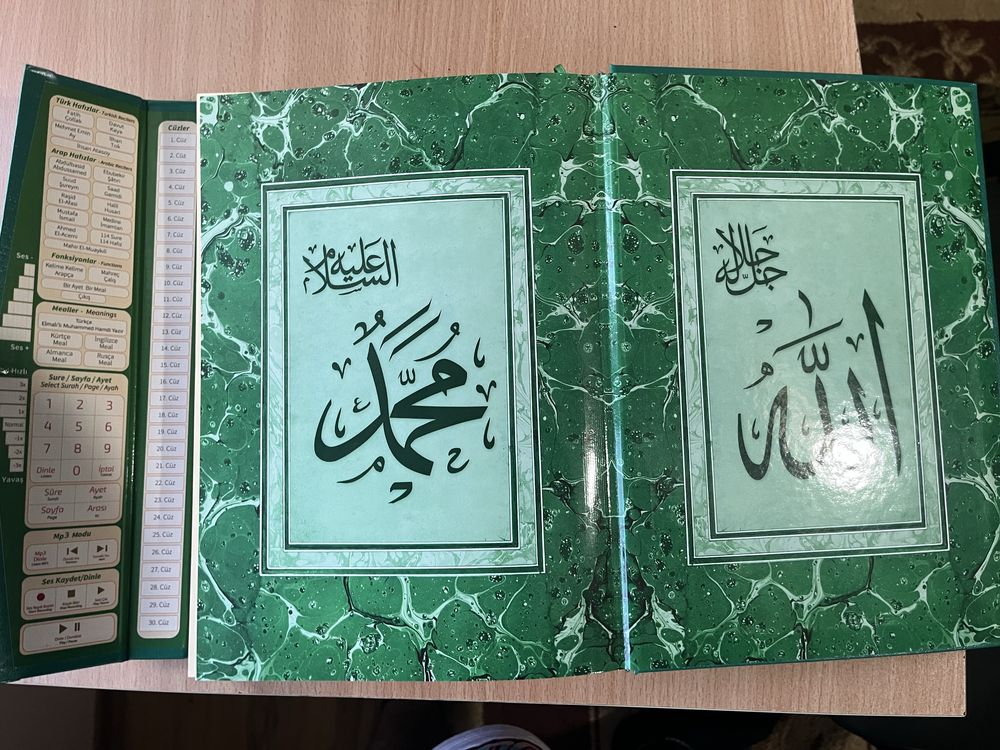 Türk Hafızlar - Turkish Reciters
Fatih Çollak
Davut Kaya
Mehmet Emin Ay
İlhan Tok
İhsan Atasoy
Arap Hafızlar - Arabic Reciters
Abdulbasid Abdussamed
Ebubekir Şâtırı
Suud Şureym
Saad Gamidi
Raşid El-Afasi
Halil Husari
Mustafa İsmail
Medine İmamları
Ahmed El-Acemi
114 Sure 114 Hafız
Mahir El-Muaykıli
Fonksiyonlar - Functions
Kelime Kelime Arapça
Mahreç Çalış
Bir Ayet Bir Meal
Çıkış
Mealler - Meanings
Türkçe
Elmalı'lı Muhammed Hamdi Yazır
Kürtçe Meal
İngilizce Meal
Almanca Meal
Rusça Meal
Sure / Sayfa / Ayet
Select Surah / Page / Ayah
1 2 3
4 5 6
7 8 9
Dinle 0 İptal
Sûre Ayet
Surah Ayah
Sayfa Arası
Page to
Mp3 Modu
Mp3 Dinle
Ses Kaydet/Dinle
Dinle / Duraklat
Play / Pause
Ses -
Ses +
Hızlı
3x
2x
1x
Normal
-1x
-2x
-3x
Yavaş
Cüzler
1. Cüz
2. Cüz
3. Cüz
4. Cüz
5. Cüz
6. Cüz
7. Cüz
8. Cüz
9. Cüz
10. Cüz
11. Cüz
12. Cüz
13. Cüz
14. Cüz
15. Cüz
16. Cüz
17. Cüz
18. Cüz
19. Cüz
20. Cüz
21. Cüz
22. Cüz
23. Cüz
24. Cüz
25. Cüz
26. Cüz
27. Cüz
28. Cüz
29. Cüz
30. Cüz
جل جلاله
الله
عليه السلام
محمد